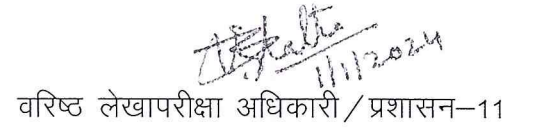 1/1/2024
वरिष्ठ लेखापरीक्षा अधिकारी / प्रशासन–11